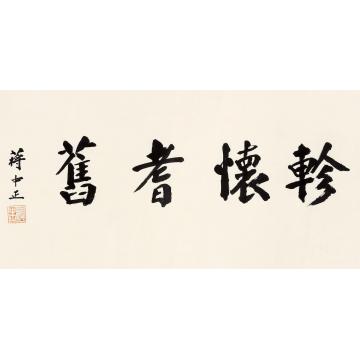 軫懷耆舊
蔣中正